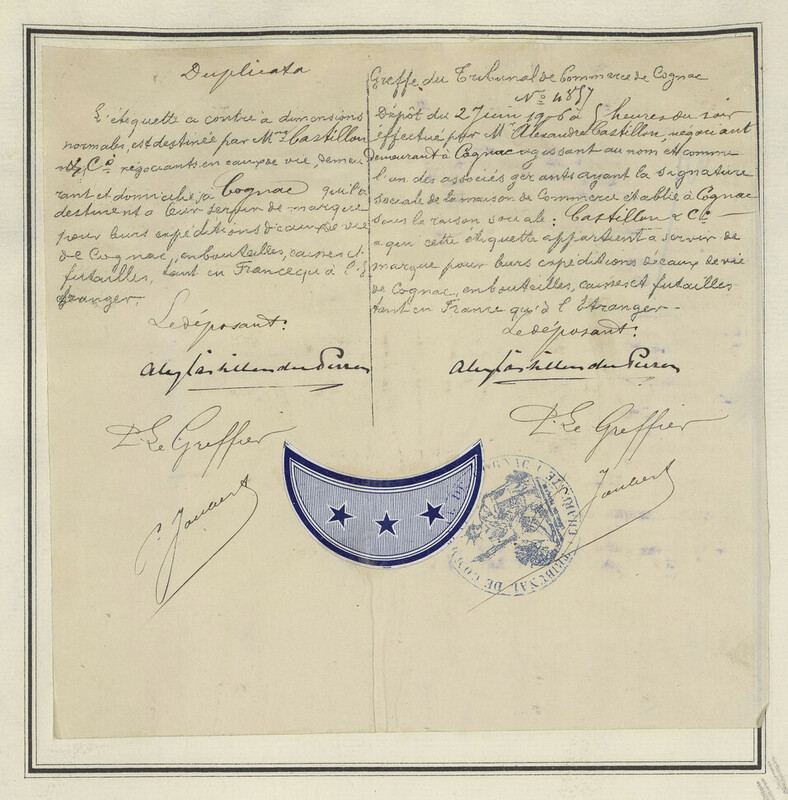 Duplicata
L'étiquette ci contre, à dimensions
normales, est destinée par Mrs Castillon
& Co. négociants en eaux de vie, demeu
rant et domiciliés à Cognac qui la
destinent à leur servir de marque
pour leurs expéditions d'eaux de vie
de Cognac, en bouteilles, caisses et
futailles, tant en France qu'à l'É
tranger.
Le déposant:
Alex Castillon du Perron
P. Le Greffier
Joubert
Greffe du Tribunal de Commerce de Cognac
No 4857
Dépôt du 27 juin 1906 à heures du soir
effectué par Mr Alexandre Castillon, négociant
demeurant à Cognac agissant au nom et comme
l'un des associés gérants ayant la signature
sociale de la maison de Commerce établie à Cognac
sous la raison sociale: Castillon & Cie
à qui cette étiquette appartient à servir de
marque pour leurs expéditions d'eaux de vie
de Cognac, en bouteilles, caisses et futailles
tant en France qu'à l'Étranger
Le déposant:
Alex Castillon du Perron
P. Le Greffier
Joubert
TRIBUNAL DE COGNAC (CHARENTE)